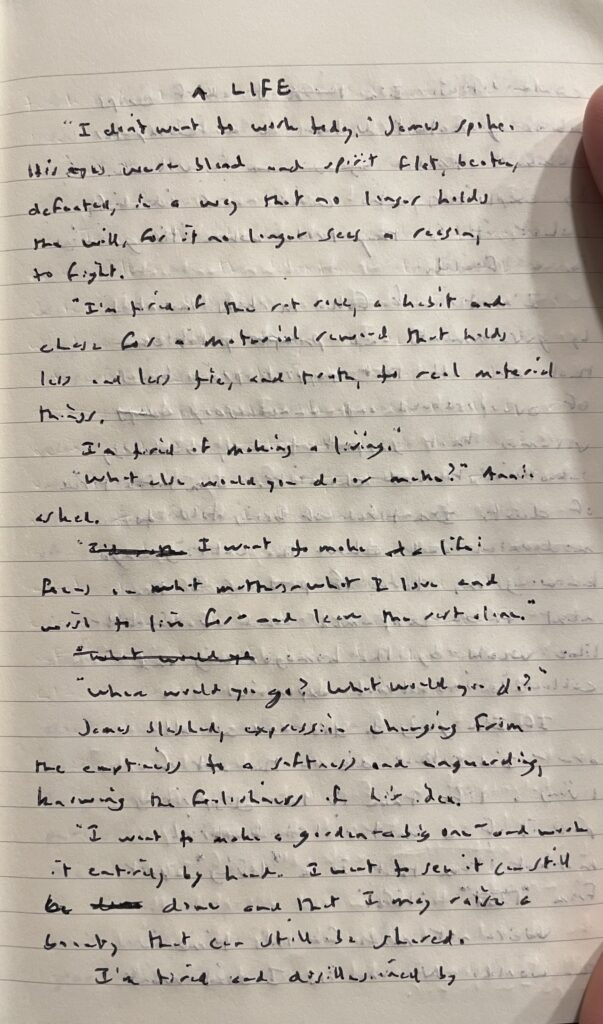 A LIFE
"I don't want to work today," James spoke.
His eyes were bland and spirit flat, beaten,
defeated, in a way that no longer holds
the will, for it no longer sees a reason,
to fight.
"I'm tired of the rat race, a habit and
chase for a material reward that holds
less and less tie, and truth, to real material
things.
I'm tired of making a living."
"What else would you do or make?" Annie
asked.
" I want to make a life:
focus on what matters—what I love and
wish to live for—and leave the rest alone."
"What would yo
"Where would you go? What would you do?"
James blushed, expression changing from
the emptiness to a softness and unguarding,
knowing the foolishness of his idea.
"I want to make a garden—a big one—and work
it entirely by hand. I want to see it can still
be done and that I may raise a
bounty that can still be shared.
I'm tired and disillusioned by